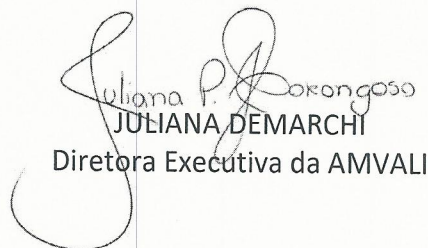 Juliana P. Dorongoso
JULIANA DEMARCHI
Diretora Executiva da AMVALI